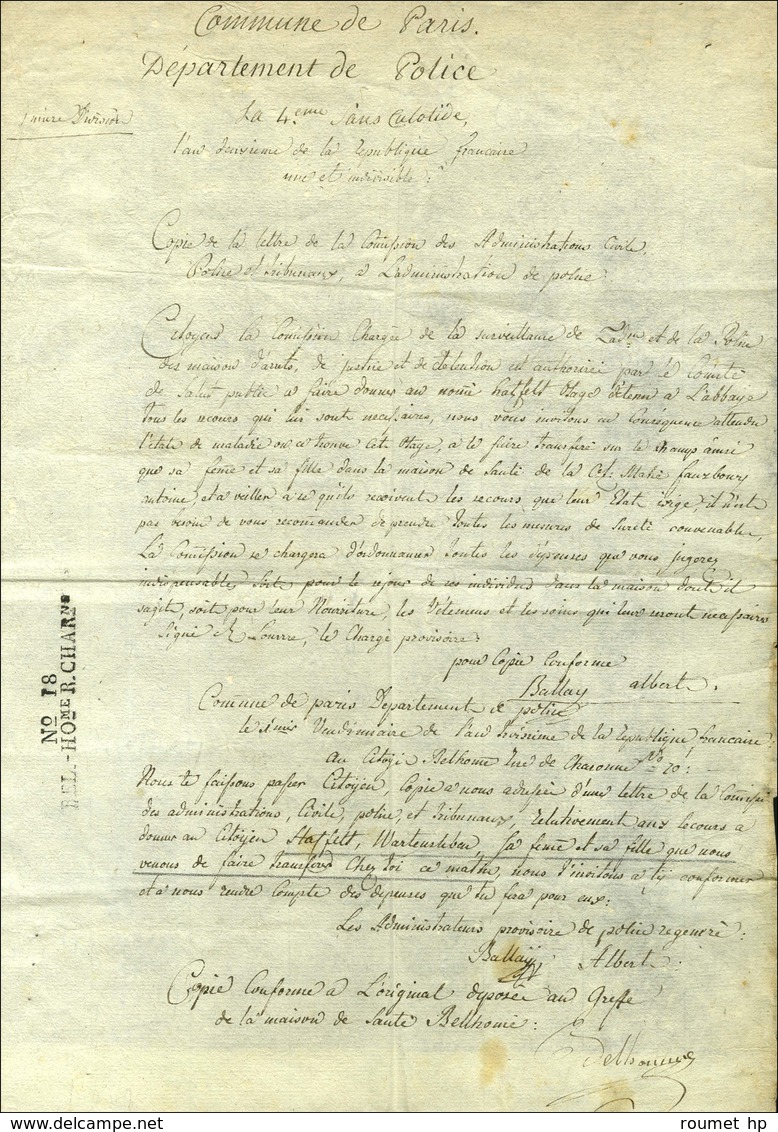 Commune de Paris.
Département de Police
La 4.eme Sans Culotide,
l'an deuxieme de la republique francaise
une et indivisible :
Copie de la lettre de la Comission des Administrations Civile,
Police et tribunaux, a L'administration de police :
Citoyens la Comission Chargée de la surveillance de et de la Police
des maison d'arrets, de justice et de detention est authorisée par le Comité
de Salut public a faire donner au nomé hatfelt Otage detenu a L'abbaye
tous les secours qui lui sont necessaires, nous vous invitons en Conséquence attendu
l'état de maladie ou ce trouve Cet Otage, a le faire transferé sur le champs ainsi
que sa feme et sa fille dans la maison de Santé de la Cet. Mahé fauxbourg
antoine, et a veiller a ce qu'ils recoivent les secours que leur Etat exige, il n'est
pas besoin de vous recomander de prendre toutes les mesures de Sureté convenables,
La Comission se chargera d'ordonnancer toutes les depenses que vous jugerez
indispensables soit pour le sejour de ces individus dans la maison dont il
sagit, soit pour leur Nourriture, les Vêtemens et les soins qui leur seront necessaires
Signé le Chargé provisoire :
pour Copie Conforme
Ballay albert.
Commune de paris Departement de police
le Vendimiaire de l'an troisieme de la republique francaise
au Citoyen Belhome rue de Charonne No 70 :
Nous te faisons passer Citoyen, Copie a nous adressée d'une lettre de la Comission
des administrations, Civile, police, et tribunaux, relativement aux secours a
donner au Citoyen Staffelt, Wartensleben, sa feme et sa fille que nous
venons de faire transferer Chez toi ce matin, nous t'invitons a t'y conformer
et a nous rendre Compte des depenses que tu fera pour eux :
Les Administrateurs provisoire de police regeneré :
Ballay Albert :
Copie Conforme a L'original deposée au Greffe
de la maison de Santé Belhome :
Belhomme
No 18
BEL-HOME R. CHARNE
roumet hp